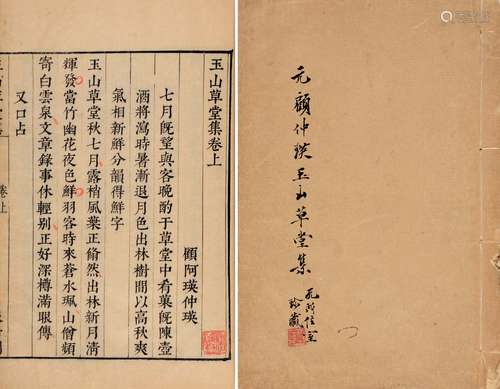 玉山草堂集卷上
顧阿瑛仲瑛
七月旣望與客晩酌于草堂中肴菓旣陳壺
酒將瀉時暑漸退月色出林樹間以高秋爽
氣相新鮮分韻得鮮字
玉山草堂秋七月露梢風葉正翛然出林新月淸
輝發當竹幽花夜色鮮羽客時來蒼水珮山僧頻
寄白雲泉文章錄事休輕別正好深樽滿眼傳
又口占
卷上
元顧仲瑛玉山草堂集
珍藏